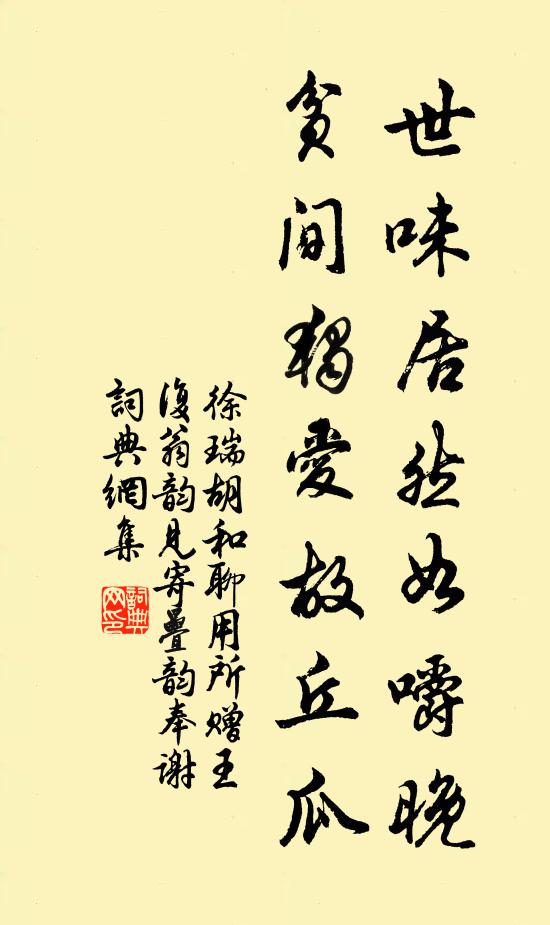 世味居然如嚼晚
貧間獨愛故丘瓜
徐瑞胡和聊用所贈王
復翁韵見寄疊韵奉謝
詞典網集
詞典网印